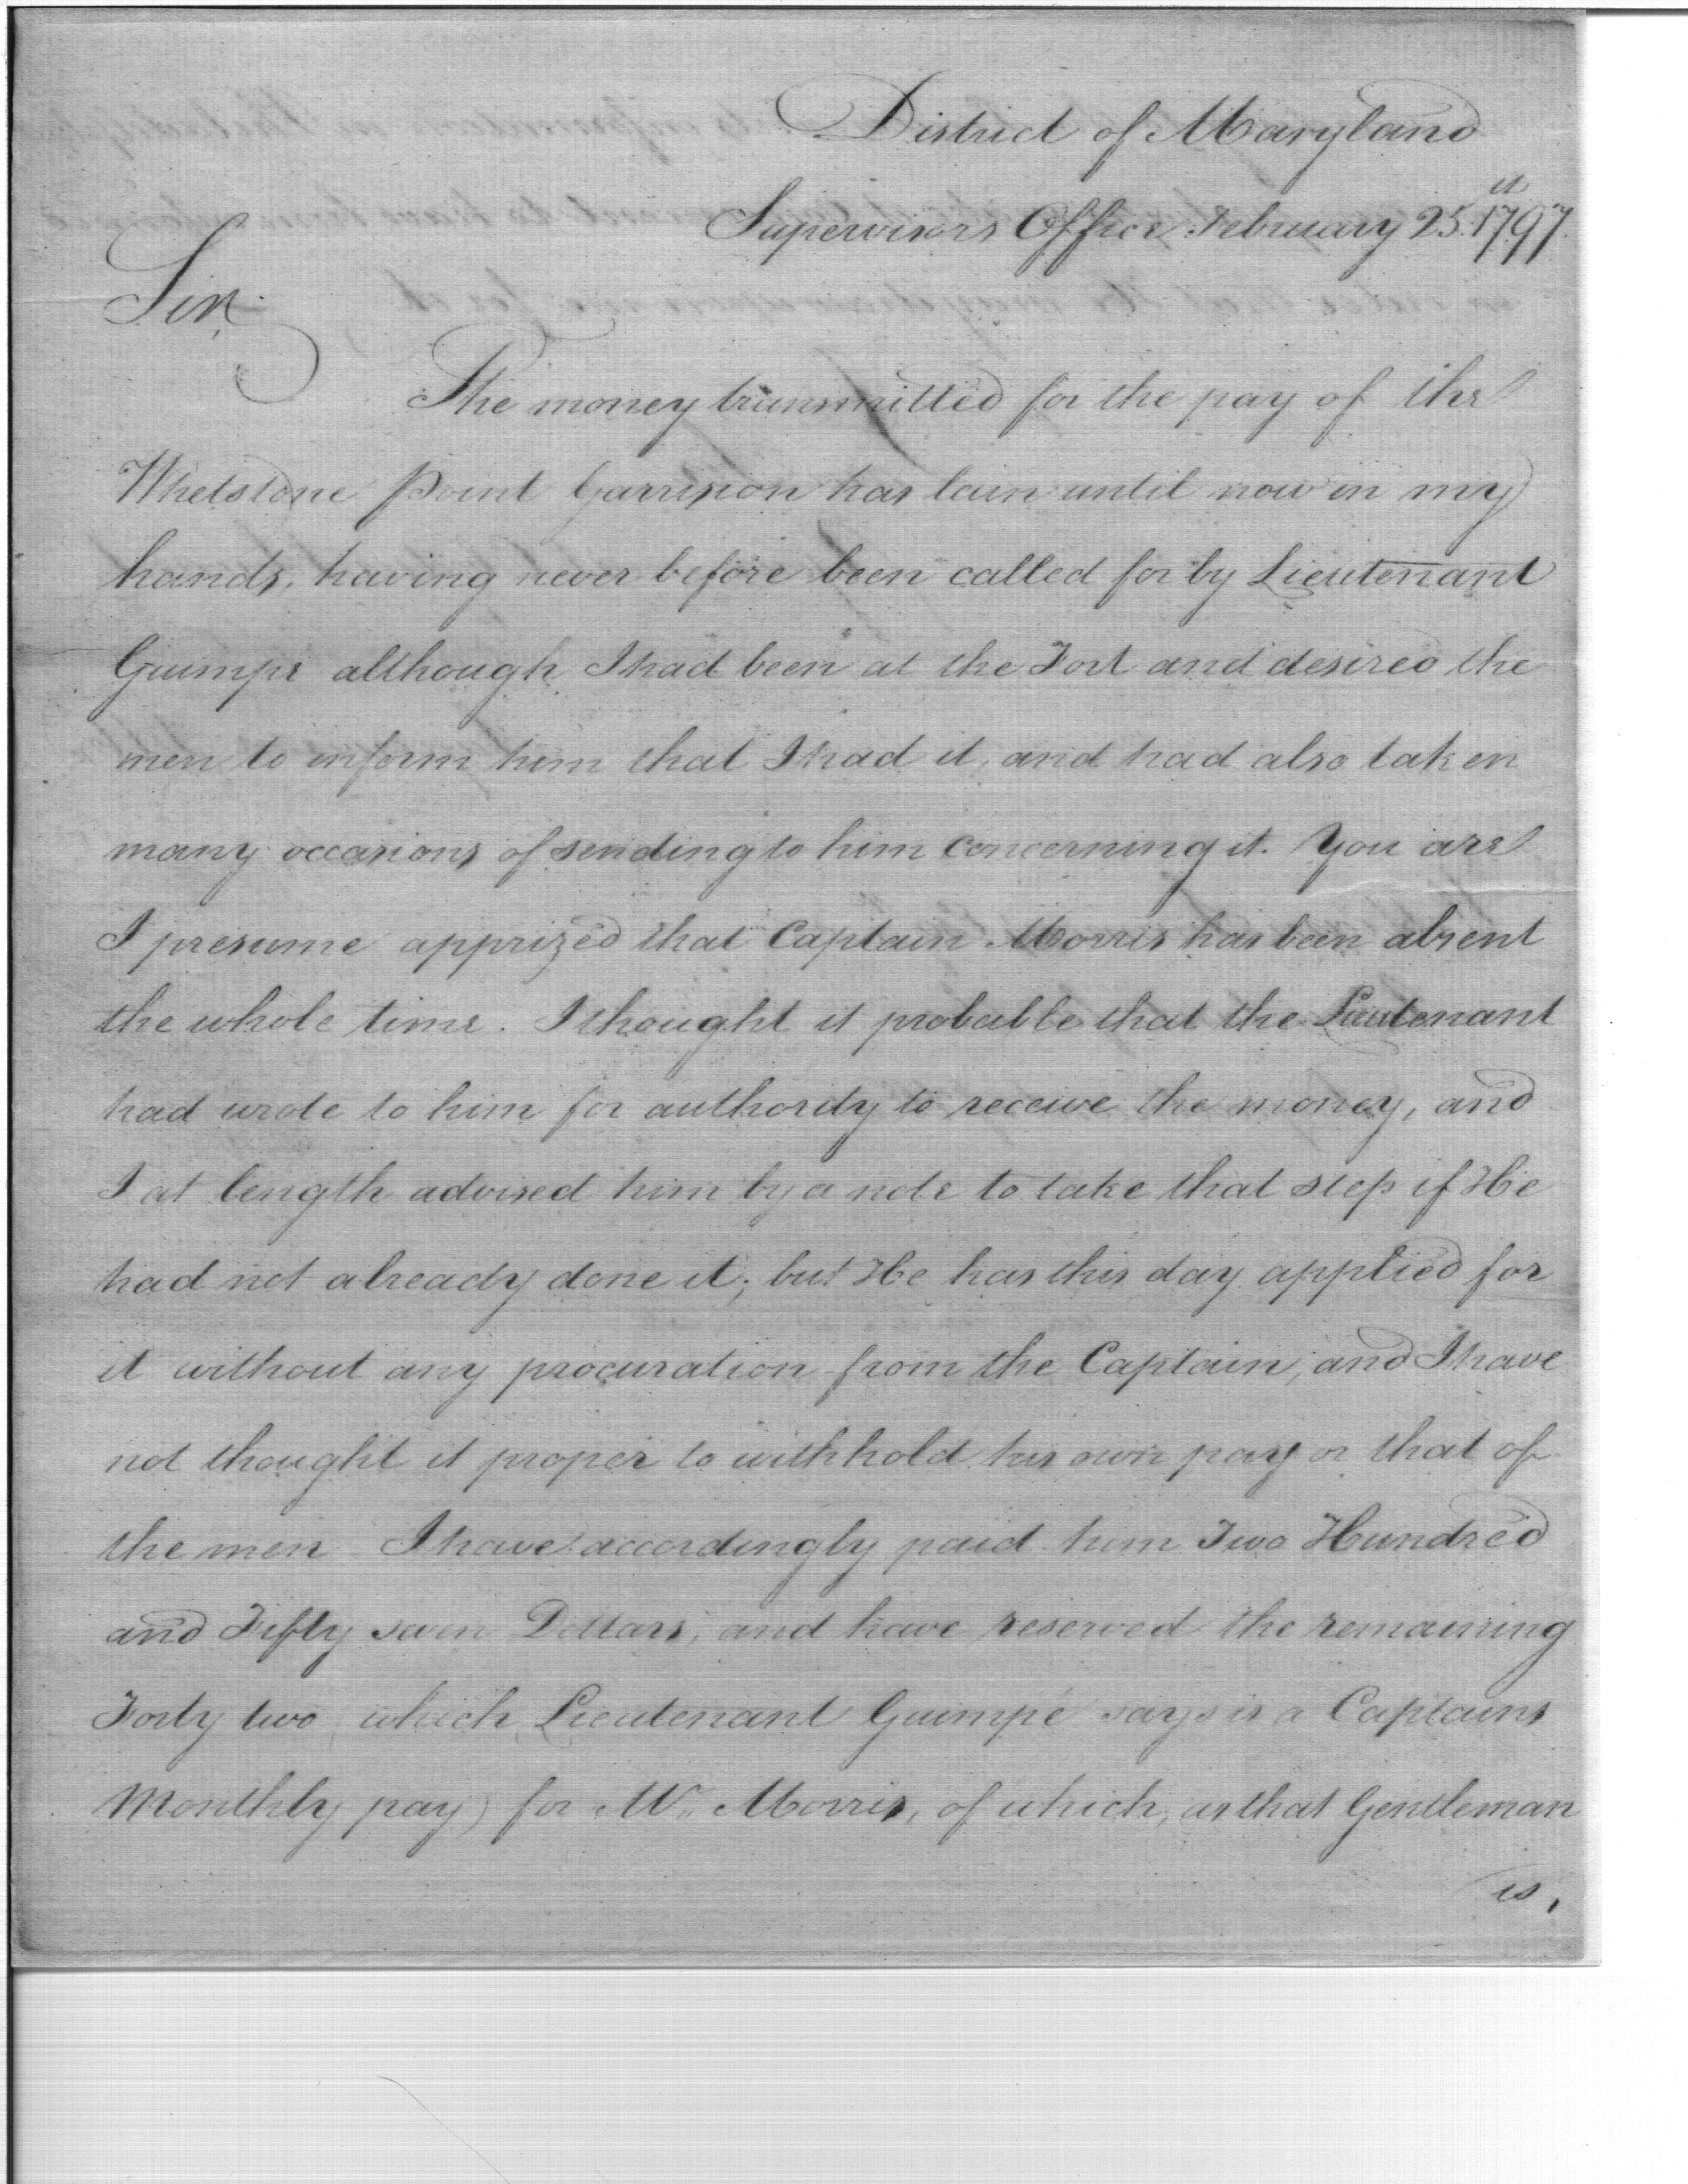 District of Maryland
Supervisors Office February 25th 1797.
Sir.
The money transmitted for the pay of the
Whetstone Point Garrison has lain until now in my
hands, having never before been called for by Lieutenant
Guimpe although I had been at the Fort and desired the
men to inform him that I had it, and had also taken
many occasions of sending to him concerning it. You are
I presume apprized that Captain Morris has been absent
the whole time. I thought it probable that the Lieutenant
had wrote to him for authority to receive the money, and
I at length advised him by a note to take that step if He
had not already done it; but He has this day applied for
it without any procuration from the Captain; and I have
not thought it proper to withhold his own pay or that of
the men I have accordingly paid him Two Hundred
and Fifty seven Dollars, and have reserved the remaining
Forty two (which Lieutenant Guimpé says is a Captains
Monthly pay) for Mr. Morris, of which, as that Gentleman
is,